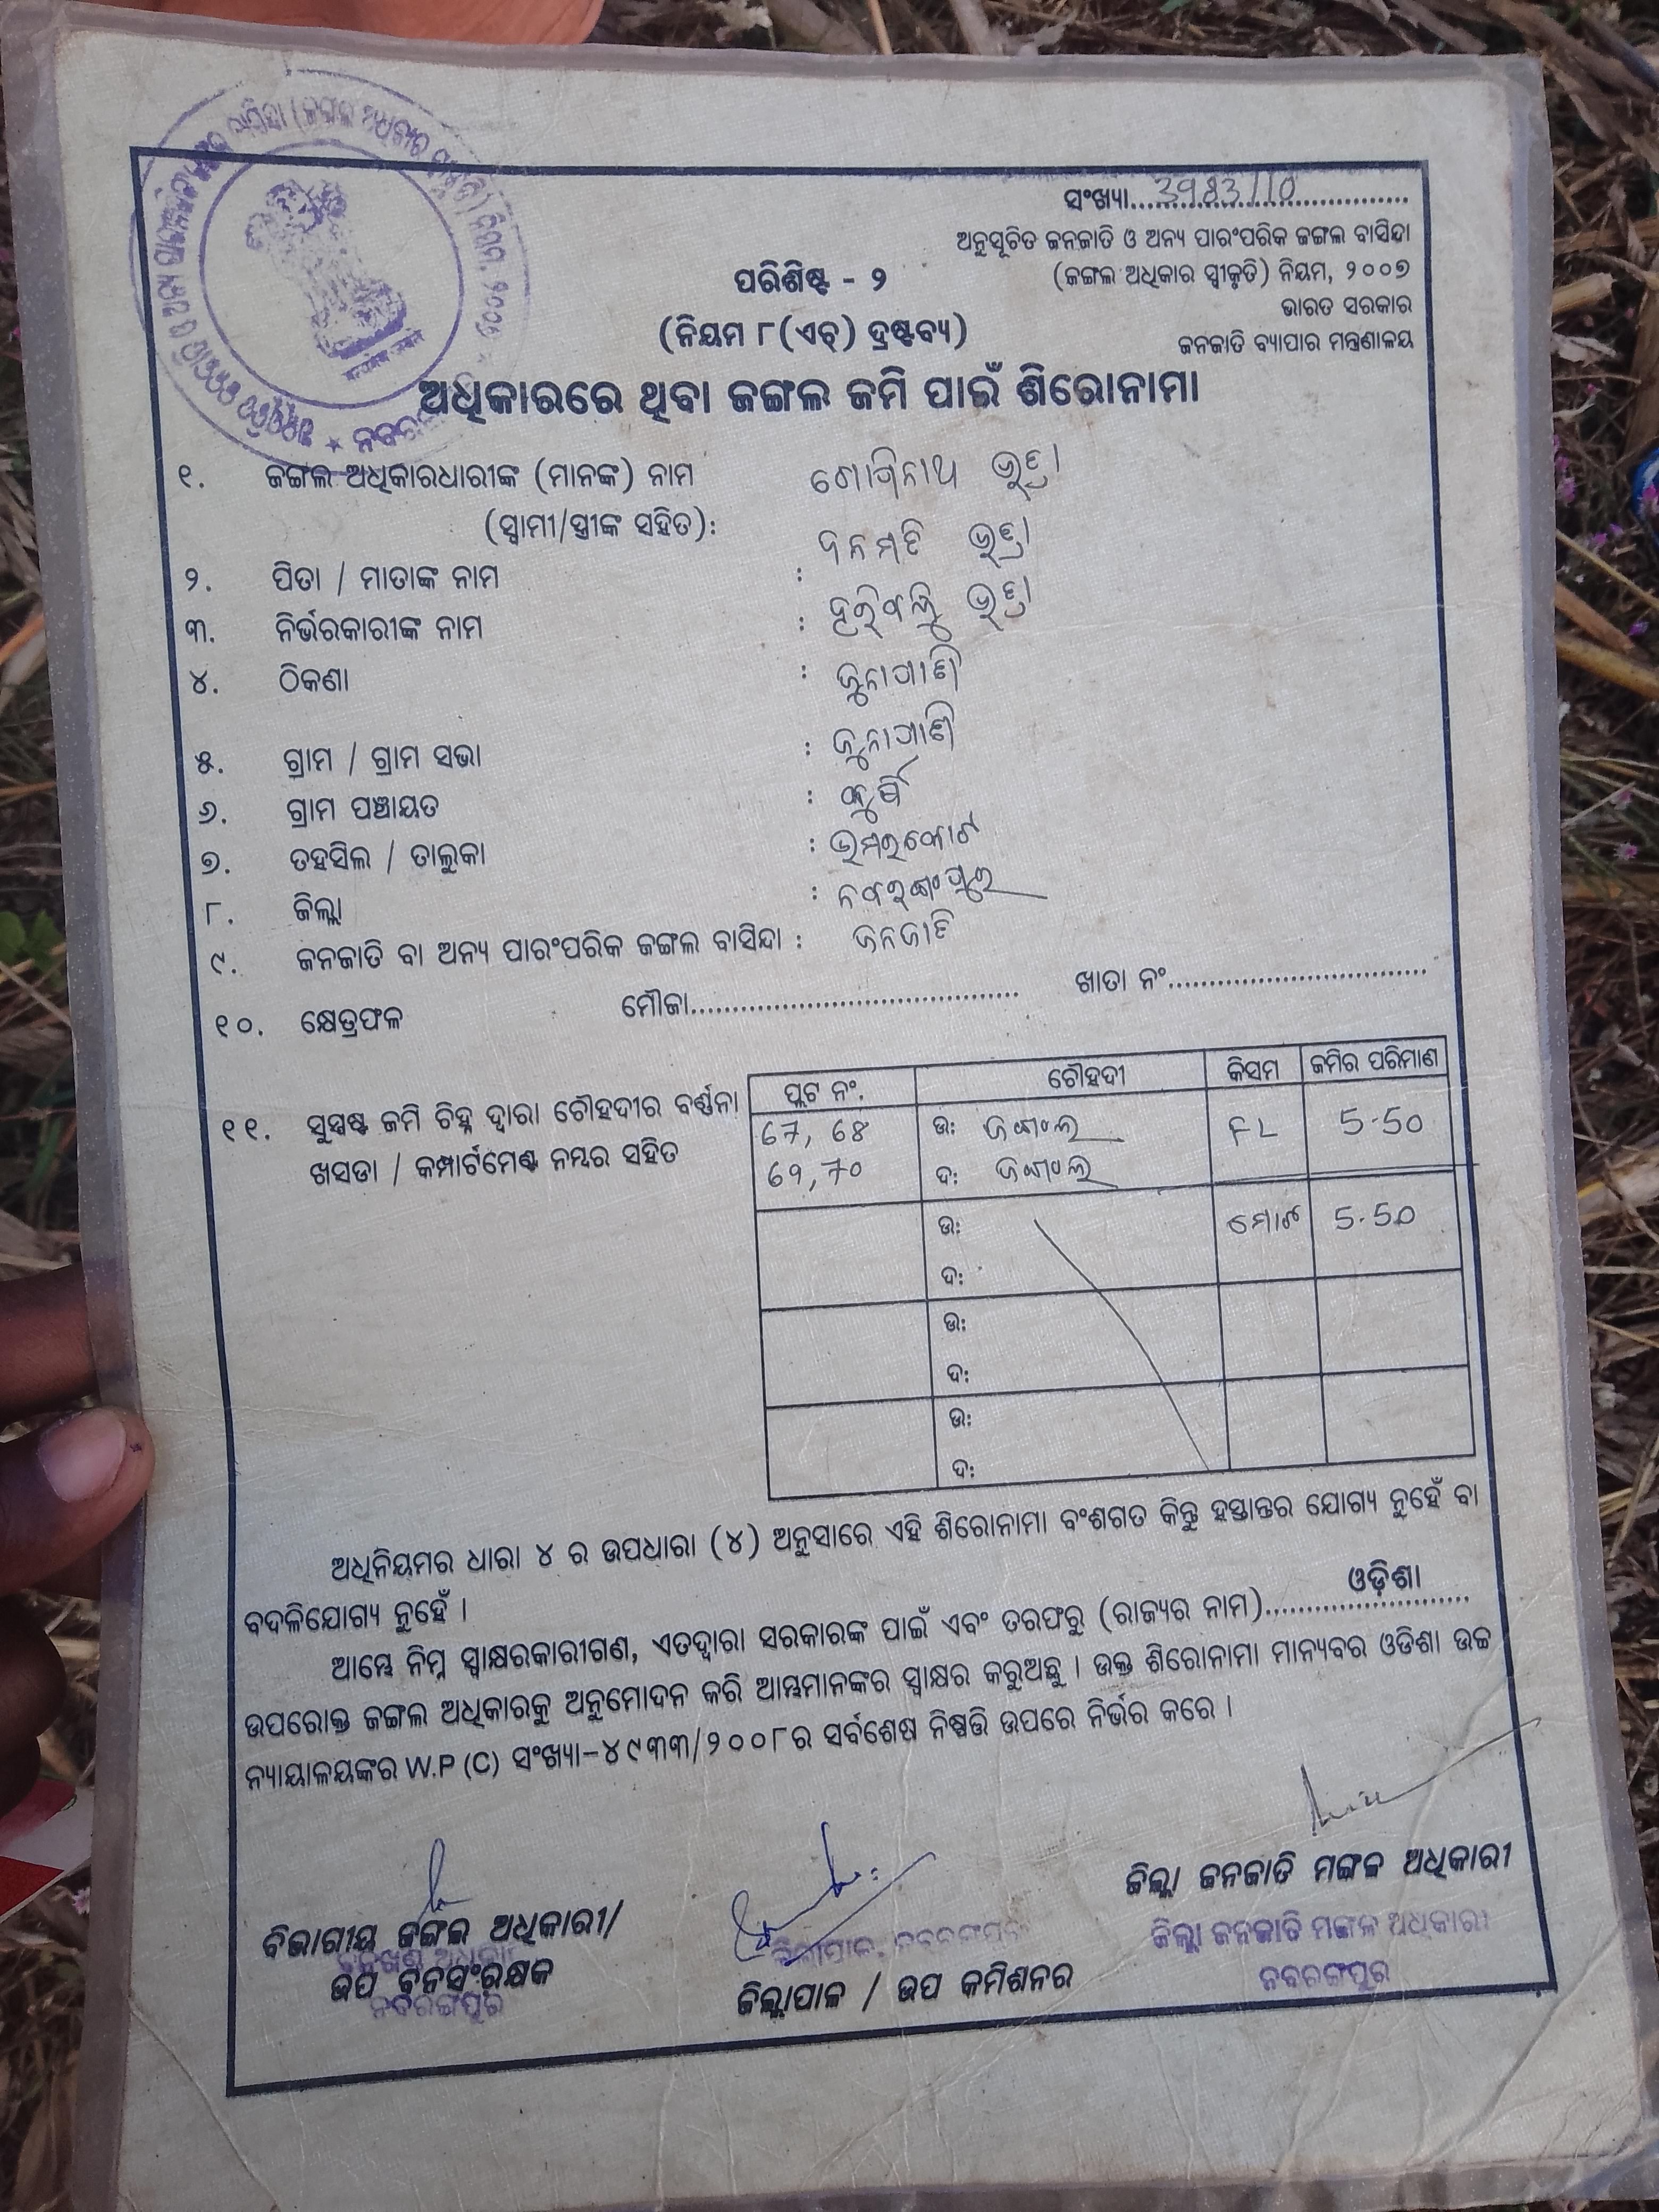 ସଂଖ୍ୟା..........3983/10..........
ଅନୁସୂଚିତ ଜନଜାତି ଓ ଅନ୍ୟ ପାରଂପରିକ ଜଙ୍ଗଲ ବାସିନ୍ଦା
(ଜଙ୍ଗଲ ଅଧିକାର ସ୍ୱୀକୃତି) ନିୟମ, ୨୦୦୭
ଭାରତ ସରକାର
ଜନଜାତି ବ୍ୟାପାର ମନ୍ତ୍ରଣାଳୟ
ପରିଶିଷ୍ଟ - ୨
(ନିୟମ ୮(ଏଚ୍) ଦ୍ରଷ୍ଟବ୍ୟ)
ଅଧିକାରରେ ଥିବା ଜଙ୍ଗଲ ଜମି ପାଇଁ ଶିରୋନାମା
୧. ଜଙ୍ଗଲ ଅଧିକାରଧାରୀଙ୍କ (ମାନଙ୍କ) ନାମ
(ସ୍ୱାମୀ/ସ୍ତ୍ରୀଙ୍କ ସହିତ):
୨. ପିତା / ମାତାଙ୍କ ନାମ :
୩. ନିର୍ଭରକାରୀଙ୍କ ନାମ :
୪. ଠିକଣା : ଜୁନାପାଣି
୫. ଗ୍ରାମ / ଗ୍ରାମ ସଭା : ଜୁନାପାଣି
୬. ଗ୍ରାମ ପଞ୍ଚାୟତ :
୭. ତହସିଲ / ତାଲୁକା : ଉମରକୋଟ
୮. ଜିଲ୍ଲା : ନବରଙ୍ଗପୁର
୯. ଜନଜାତି ବା ଅନ୍ୟ ପାରଂପରିକ ଜଙ୍ଗଲ ବାସିନ୍ଦା : ଜନଜାତି
୧୦. କ୍ଷେତ୍ରଫଳ ମୌଜା.............................. ଖାତା ନଂ..............................
୧୧. ସୁସ୍ପଷ୍ଟ ଜମି ଚିହ୍ନ ଦ୍ୱାରା ଚୌହଦୀର ବର୍ଣ୍ଣନା
ଖସଡା / କମ୍ପାର୍ଟମେଣ୍ଟ ନମ୍ବର ସହିତ
ପ୍ଲଟ ନଂ. ଚୌହଦୀ କିସମ ଜମିର ପରିମାଣ
67, 68 ଉ: ଜଙ୍ଗଲ FL 5.50
69, 70 ଦ: ଜଙ୍ଗଲ
ଉ: ମୋଟ 5.50
ଦ:
ଉ:
ଦ:
ଉ:
ଦ:
ଅଧିନିୟମର ଧାରା ୪ ର ଉପଧାରା (୪) ଅନୁସାରେ ଏହି ଶିରୋନାମା ବଂଶଗତ କିନ୍ତୁ ହସ୍ତାନ୍ତର ଯୋଗ୍ୟ ନୁହେଁ ବା
ବଦଳିଯୋଗ୍ୟ ନୁହେଁ ।
ଆମ୍ଭେ ନିମ୍ନ ସ୍ୱାକ୍ଷରକାରୀଗଣ, ଏତଦ୍ୱାରା ସରକାରଙ୍କ ପାଇଁ ଏବଂ ତରଫରୁ (ରାଜ୍ୟର ନାମ)..........ଓଡ଼ିଶା..........
ଉପରୋକ୍ତ ଜଙ୍ଗଲ ଅଧିକାରକୁ ଅନୁମୋଦନ କରି ଆମ୍ଭମାନଙ୍କର ସ୍ୱାକ୍ଷର କରୁଅଛୁ । ଉକ୍ତ ଶିରୋନାମା ମାନ୍ୟବର ଓଡିଶା ଉଚ୍ଚ
ନ୍ୟାୟାଳୟଙ୍କର W.P (C) ସଂଖ୍ୟା-୪୯୩୩/୨୦୦୮ର ସର୍ବଶେଷ ନିଷ୍ପତ୍ତି ଉପରେ ନିର୍ଭର କରେ ।
ବିଭାଗୀୟ ଜଙ୍ଗଲ ଅଧିକାରୀ/
ଉପ ବନସଂରକ୍ଷକ
ନବରଙ୍ଗପୁର
ଜିଲ୍ଲାପାଳ, ନବରଙ୍ଗପୁର
ଜିଲ୍ଲାପାଳ / ଉପ କମିଶନର
ଜିଲ୍ଲା ଜନଜାତି ମଙ୍ଗଳ ଅଧିକାରୀ
ଜିଲ୍ଲା ଜନଜାତି ମଙ୍ଗଳ ଅଧିକାରୀ
ନବରଙ୍ଗପୁର